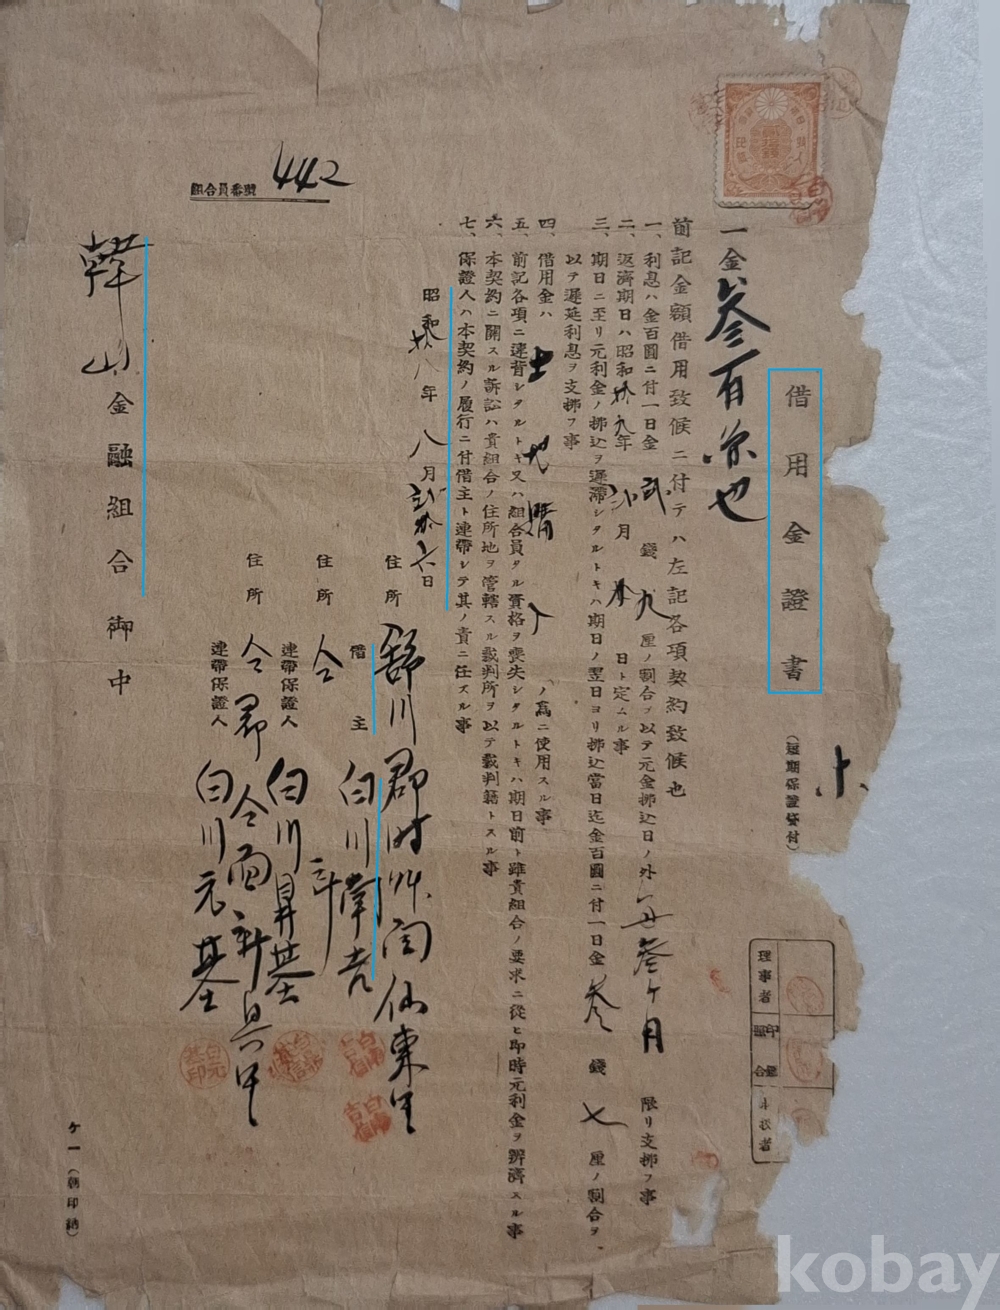 借用金證書
(短期保證貸付)
一金參百円也
前記金額借用致候ニ付テハ左記各項契約致候也
一、利息ハ金百圓ニ付一日金貳錢九厘ノ割合ヲ以テ元金拂込日ノ外參ケ月限リ支拂フ事
二、返濟期日ハ昭和拾九年月日ト定ムル事
三、期日ニ至リ元利金ノ拂込ヲ遲滯シタルトキハ期日ノ翌日ヨリ拂込當日迄金百圓ニ付一日金參錢七厘ノ割合ヲ
以テ遲延利息ヲ支拂フ事
四、借用金ハ土地購入ノ爲ニ使用スル事
五、前記各項ニ違背シタルトキ又ハ組合員タル資格ヲ喪失シタルトキハ期日前ト雖貴組合ノ要求ニ從ヒ卽時元利金ヲ辨濟スル事
六、本契約ニ關スル訴訟ハ貴組合ノ住所地ヲ管轄スル裁判所ヲ以テ裁判籍トスル事
七、保證人ハ本契約ノ履行ニ付借主ト連帶シテ其ノ責ニ任スル事
昭和拾八年八月貳拾六日
住所 舒川郡時草面仙東里
借主 白川
住所 仝
連帶保證人 白川昇基
住所 仝郡仝面新里
連帶保證人 白川元基
韓山金融組合御中
組合員番號 442
理事者
印鑑照合
kobay